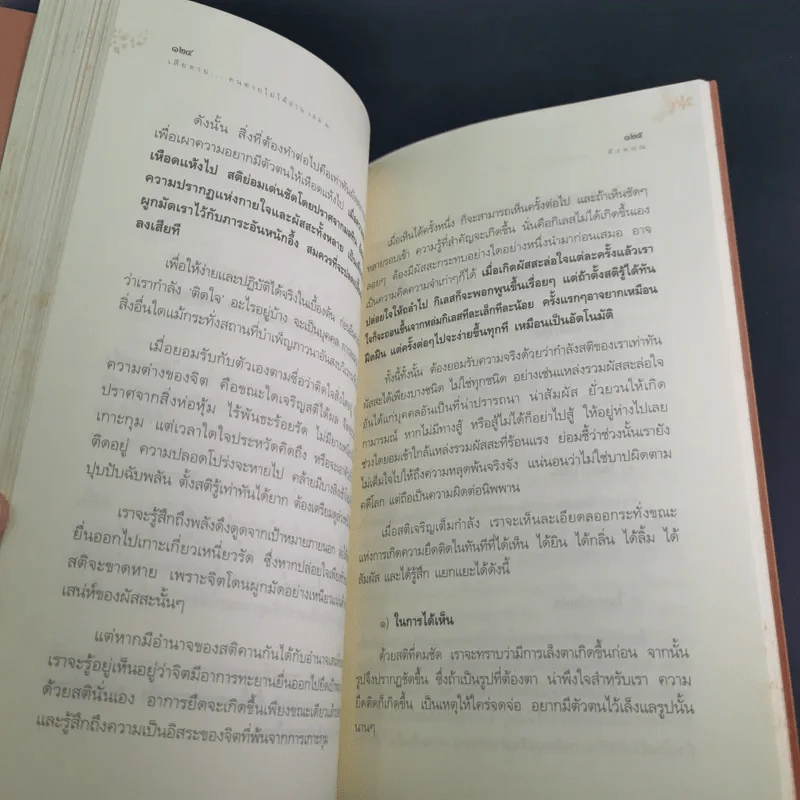 ๑๒๔
เสียดาย... คนตายไม่ได้อ่าน เล่ม ๒
ดังนั้น สิ่งที่ต้องทำต่อไปคือเท่าทัน
เพื่อเผาความอยากมีตัวตนให้เหือดแห้งไป
เหือดแห้งไป สติย่อมเด่นชัดโดยปราศจาก
ความปรากฏแห่งกายใจและผัสสะทั้งหลาย
ผูกมัดเราไว้กับภาระอันหนักอึ้ง สมควรที่จะ
ลงเสียที
เพื่อให้ง่ายและปฏิบัติได้จริงในเบื้องต้น
ว่าเรากำลัง 'ติดใจ' อะไรอยู่บ้าง จะเป็นบุคคล
สิ่งอื่นใดแม้กระทั่งสถานที่บำเพ็ญภาวนาอันสงบ
เมื่อยอมรับกับตัวเองตามซื่อว่าติดใจสิ่งใด
ความต่างของจิต คือขณะใดเจริญสติได้ผล
ปราศจากสิ่งห่อหุ้ม ไร้พันธะร้อยรัด ไม่มี
เกาะกุม แต่เวลาใดใจประหวัดคิดถึง หรือ
ติดอยู่ ความปลอดโปร่งจะหายไป คล้ายมีบางสิ่ง
ปุบปับฉับพลัน ตั้งสติรู้เท่าทันได้ยาก ต้องเตรียม
เราจะรู้สึกถึงพลังดึงดูดจากเป้าหมายภายนอก
ยื่นออกไปเกาะเกี่ยวเหนี่ยวรัด ซึ่งหากปล่อยใจ
สติจะขาดหาย เพราะจิตโดนผูกมัดอย่างเหนียวแน่น
เสน่ห์ของผัสสะนั้นๆ
แต่หากมีอำนาจของสติคานกันได้กับอำนาจ
เราจะรู้อยู่เห็นอยู่ว่าจิตมีอาการทะยานยื่นออกไปยึด
ด้วยสตินั่นเอง อาการยึดจะเกิดขึ้นเพียงขณะเดียว
และรู้สึกถึงความเป็นอิสระของจิตที่พ้นจากการเกาะกุม
๑๒๕
เมื่อเห็นได้ครั้งหนึ่ง ก็จะสามารถเห็นครั้งต่อไป และถ้าเห็นชัดๆ
หลายรอบเข้า ความรู้ที่สำคัญจะเกิดขึ้น นั่นคือกิเลสไม่ได้เกิดขึ้นเอง
ลอยๆ ต้องมีผัสสะกระทบอย่างใดอย่างหนึ่งนำมาก่อนเสมอ อาจ
เป็นความคิดความจำเก่าๆก็ได้ เมื่อเกิดผัสสะล่อใจแต่ละครั้งแล้วเรา
ปล่อยใจให้ถลำไป กิเลสก็จะพอกพูนขึ้นเรื่อยๆ แต่ถ้าตั้งสติรู้ได้ทัน
ใจก็จะถอนขึ้นจากหล่มกิเลสทีละเล็กทีละน้อย ครั้งแรกๆอาจยากเหมือน
ฝืดฝืน แต่ครั้งต่อๆไปจะง่ายขึ้นทุกที เหมือนเป็นอัตโนมัติ
ทั้งนี้ทั้งนั้น ต้องยอมรับความจริงด้วยว่ากำลังสติของเราเท่าทัน
ผัสสะได้เพียงบางชนิด ไม่ใช่ทุกชนิด อย่างเช่นแหล่งรวมผัสสะล่อใจ
อันได้แก่บุคคลอันเป็นที่น่าปรารถนา น่าสัมผัส ยั่วยวนให้เกิด
กามารมณ์ หากไม่มีทางสู้ หรือสู้ไม่ได้ก็อย่าไปสู้ ให้อยู่ห่างไปเลย
ช่วงใดยอมเข้าใกล้แหล่งรวมผัสสะที่ร้อนแรง ย่อมชี้ว่าช่วงนั้นเรายัง
ไม่เต็มใจไปให้ถึงความหลุดพ้นจริงจัง แน่นอนว่าไม่ใช่บาปผิดตาม
คดีโลก แต่ถือเป็นความผิดต่อนิพพาน
เมื่อสติเจริญเต็มกำลัง เราจะเห็นละเอียดลออกระทั่งขณะ
แห่งการเกิดความยึดติดในทันทีที่ได้เห็น ได้ยิน ได้กลิ่น ได้ลิ้ม ได้
สัมผัส และได้รู้สึก แยกแยะได้ดังนี้
๑) ในการได้เห็น
ด้วยสติที่คมชัด เราจะทราบว่ามีการเล็งตาเกิดขึ้นก่อน จากนั้น
รูปจึงปรากฏชัดขึ้น ซึ่งถ้าเป็นรูปที่ต้องตา น่าพึงใจสำหรับเรา ความ
ยึดติดก็เกิดขึ้น เป็นเหตุให้ใคร่จดจ่อ อยากมีตัวตนไว้เล็งแลรูปนั้น
นานๆ